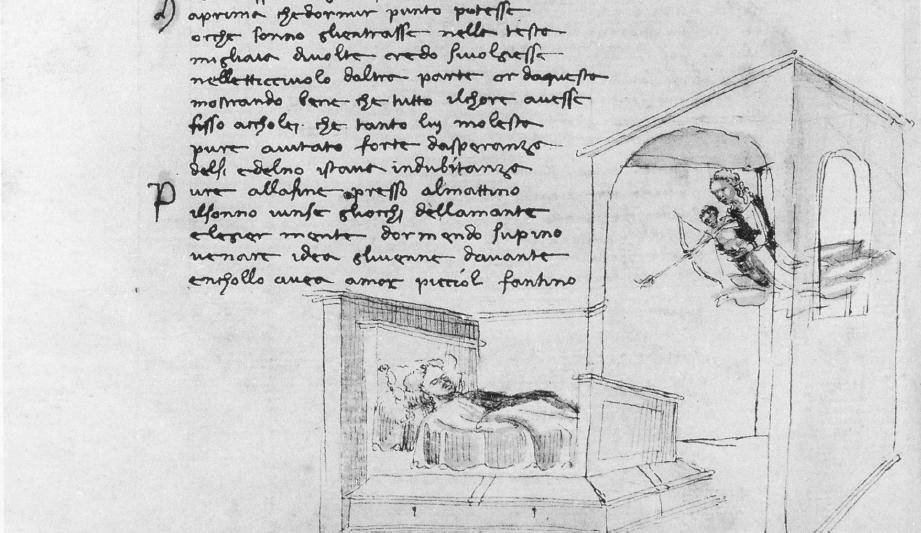 aprima che dormir punto potesse
o che sonno glientrasse nella testa
migliaia divolte credo sivolgiesse
nelletticciuolo daltra parte or daquesta
mostrando bene che tutto ilchore avesse
fisso accholei che tanto lui molesta
pure aiutato forte dasperanza
delsi edelno istava indubitanza
Pure allafine presso almattino
ilsonno vinse gliocchi dellamante
elegier mente dormendo supino
venere idea glivenne davante
enchollo avea amor picciol fantino